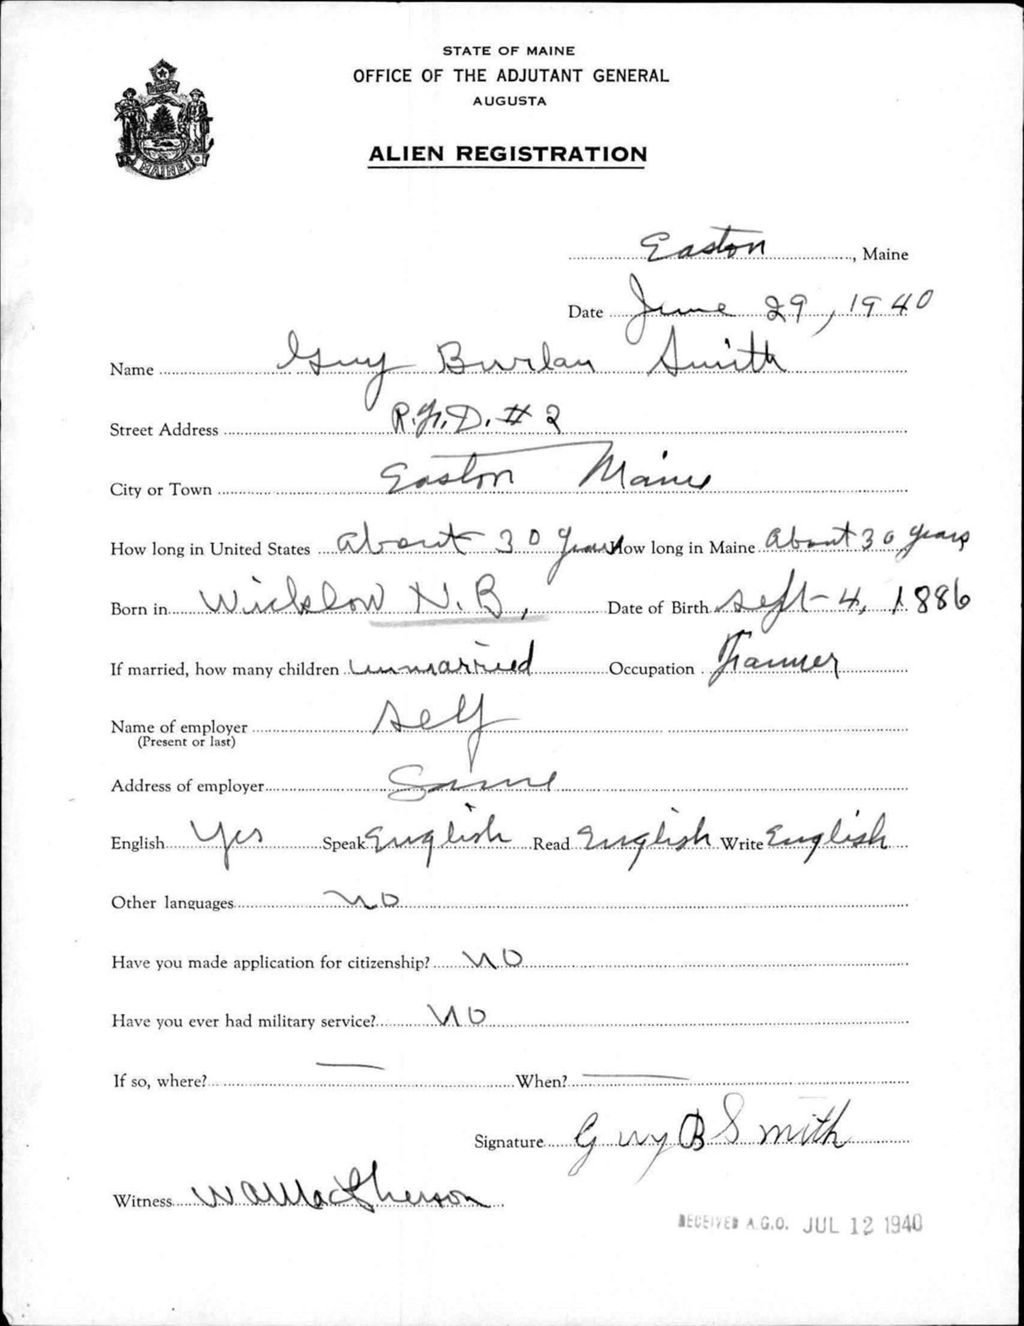 STATE OF MAINE
OFFICE OF THE ADJUTANT GENERAL
AUGUSTA
ALIEN REGISTRATION
MAINE
Easton, Maine
Date June 29, 1940
Name Guy Burlan Smith
Street Address R.F.D. # 2
City or Town Easton Maine
How long in United States About 30 years How long in Maine About 30 years
Born in Wicklow N.B, Date of Birth Sept - 4, 1886
If married, how many children unmarried Occupation Farmer
Name of employer self
(Present or last)
Address of employer Same
English Yes Speak English Read English Write English
Other languages no
Have you made application for citizenship? no
Have you ever had military service? no
If so, where? — When? —
Signature Guy B Smith
Witness W A MacPherson
RECEIVED A.G.O. JUL 12 1940